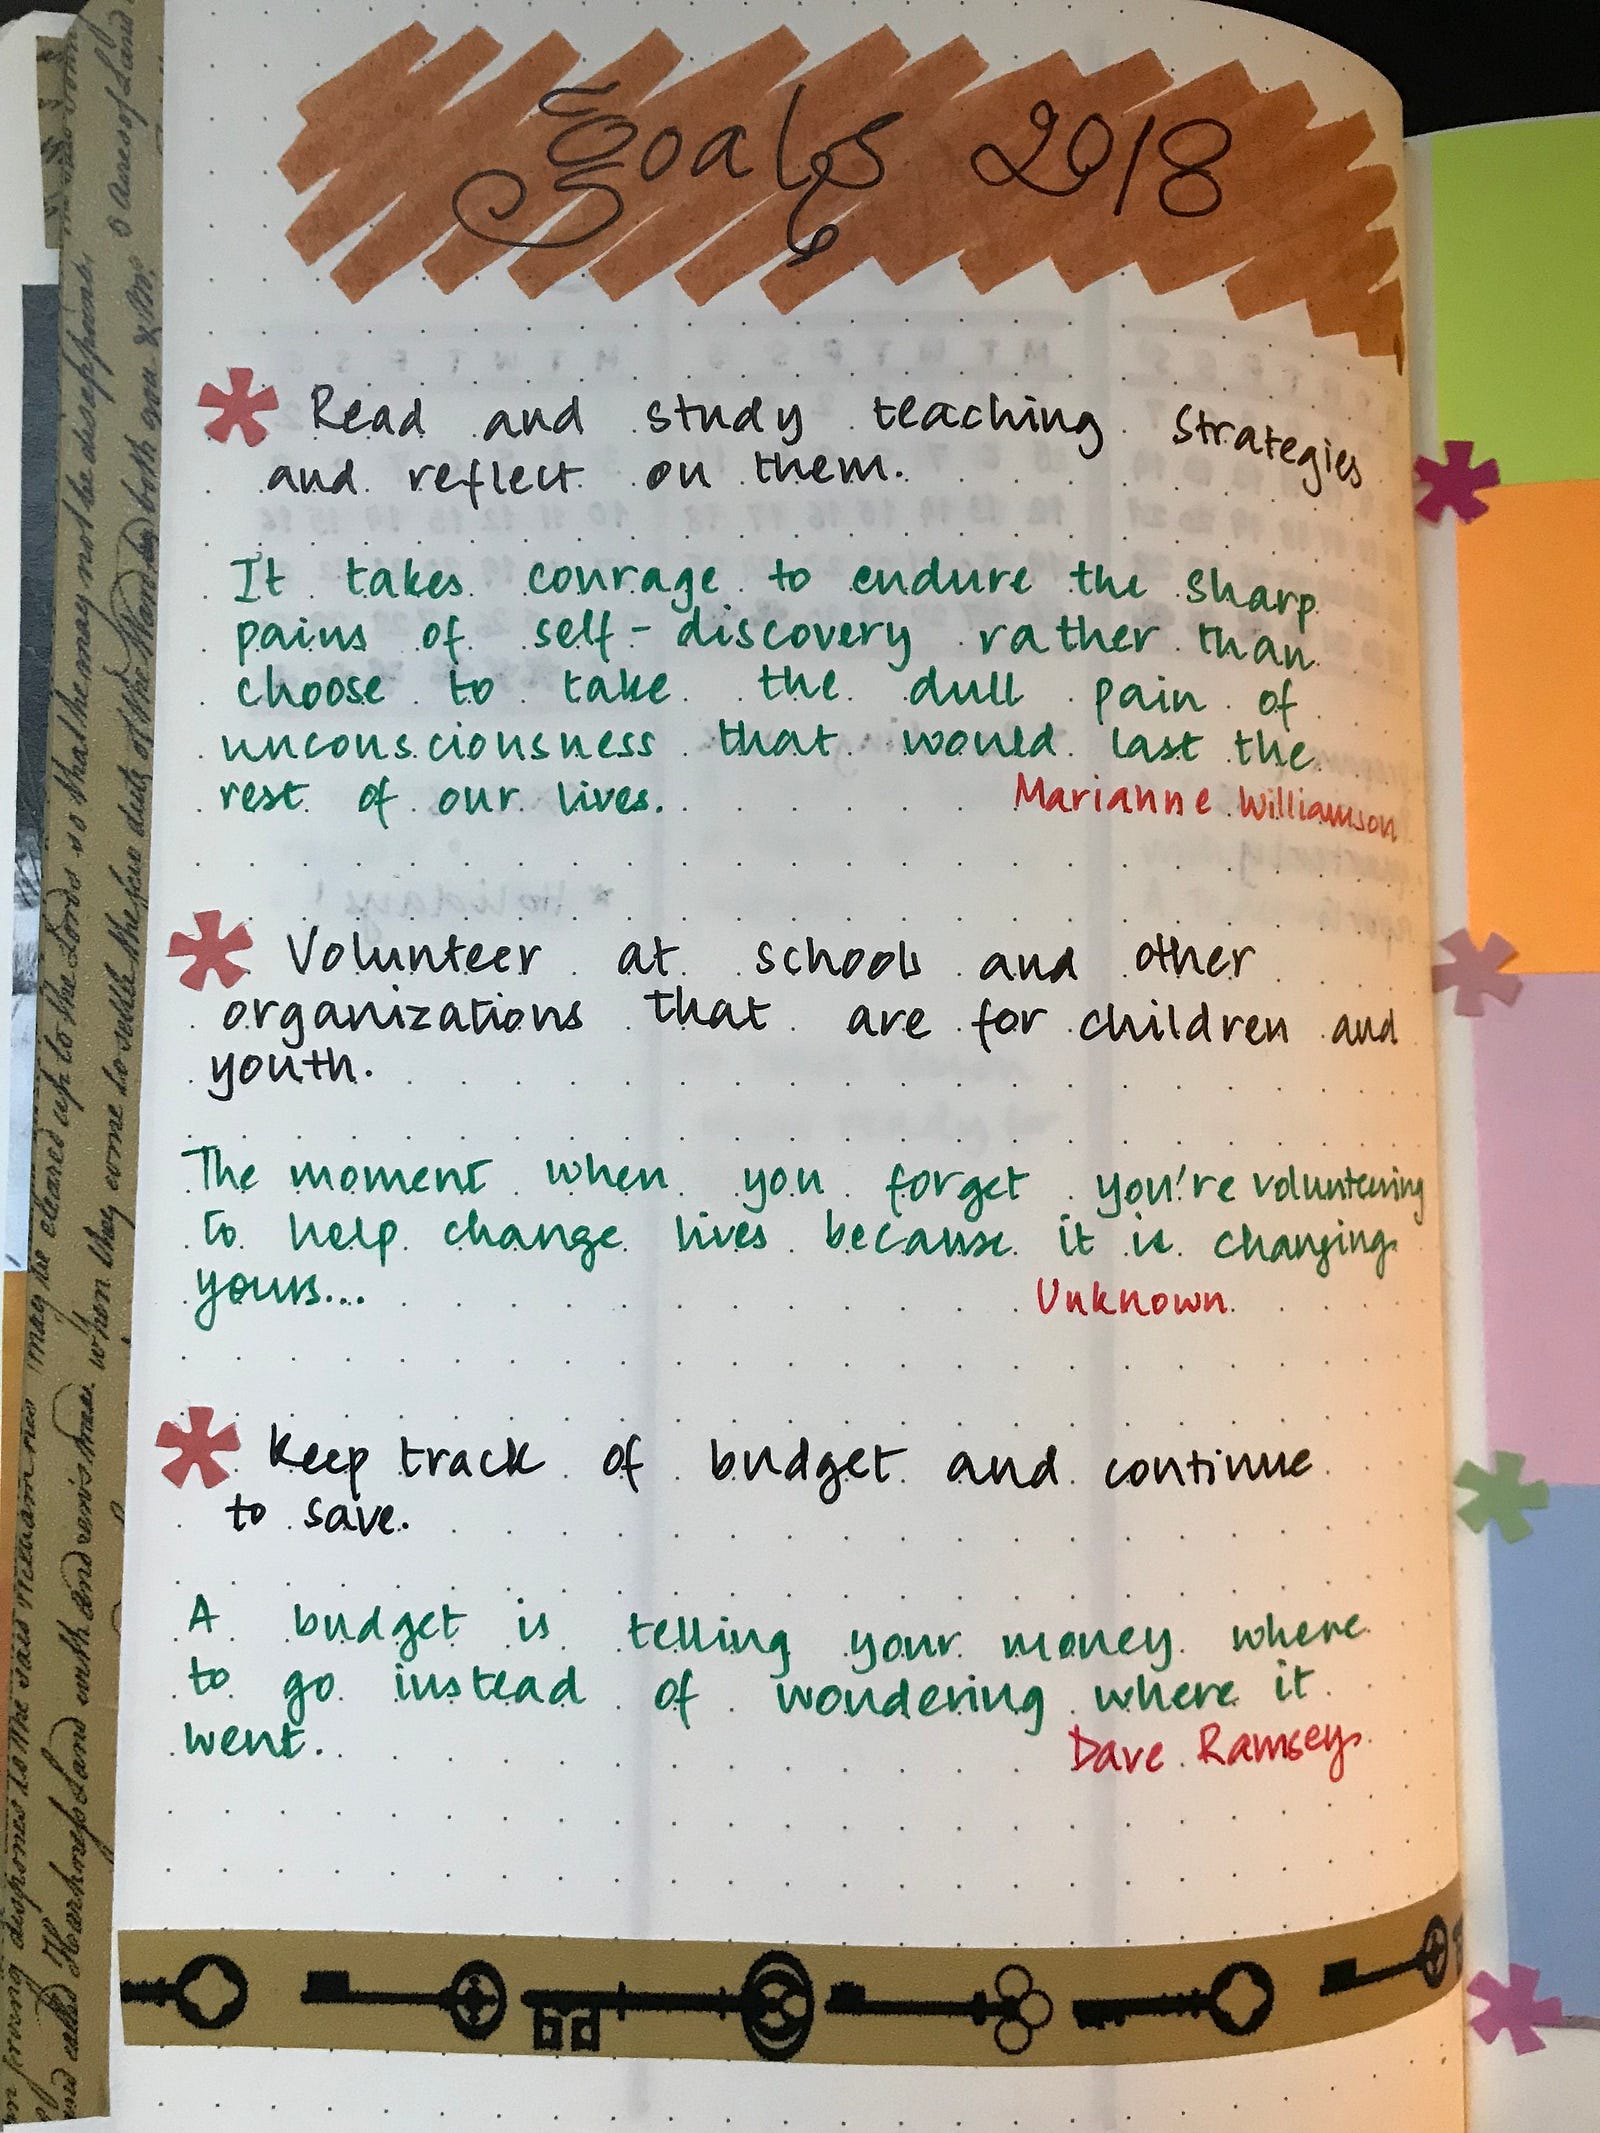 Goals 2018
Read and study teaching strategies
and reflect on them.
It takes courage to endure the sharp
pains of self-discovery rather than
choose to take the dull pain of
unconsciousness that would last the
rest of our lives.
Marianne Williamson
Volunteer at schools and other
organizations that are for children and
youth.
The moment when you forget you're volunteering
to help change lives because it is changing
yours...
Unknown
Keep track of budget and continue
to save.
A budget is telling your money where
to go instead of wondering where it
went.
Dave Ramsey